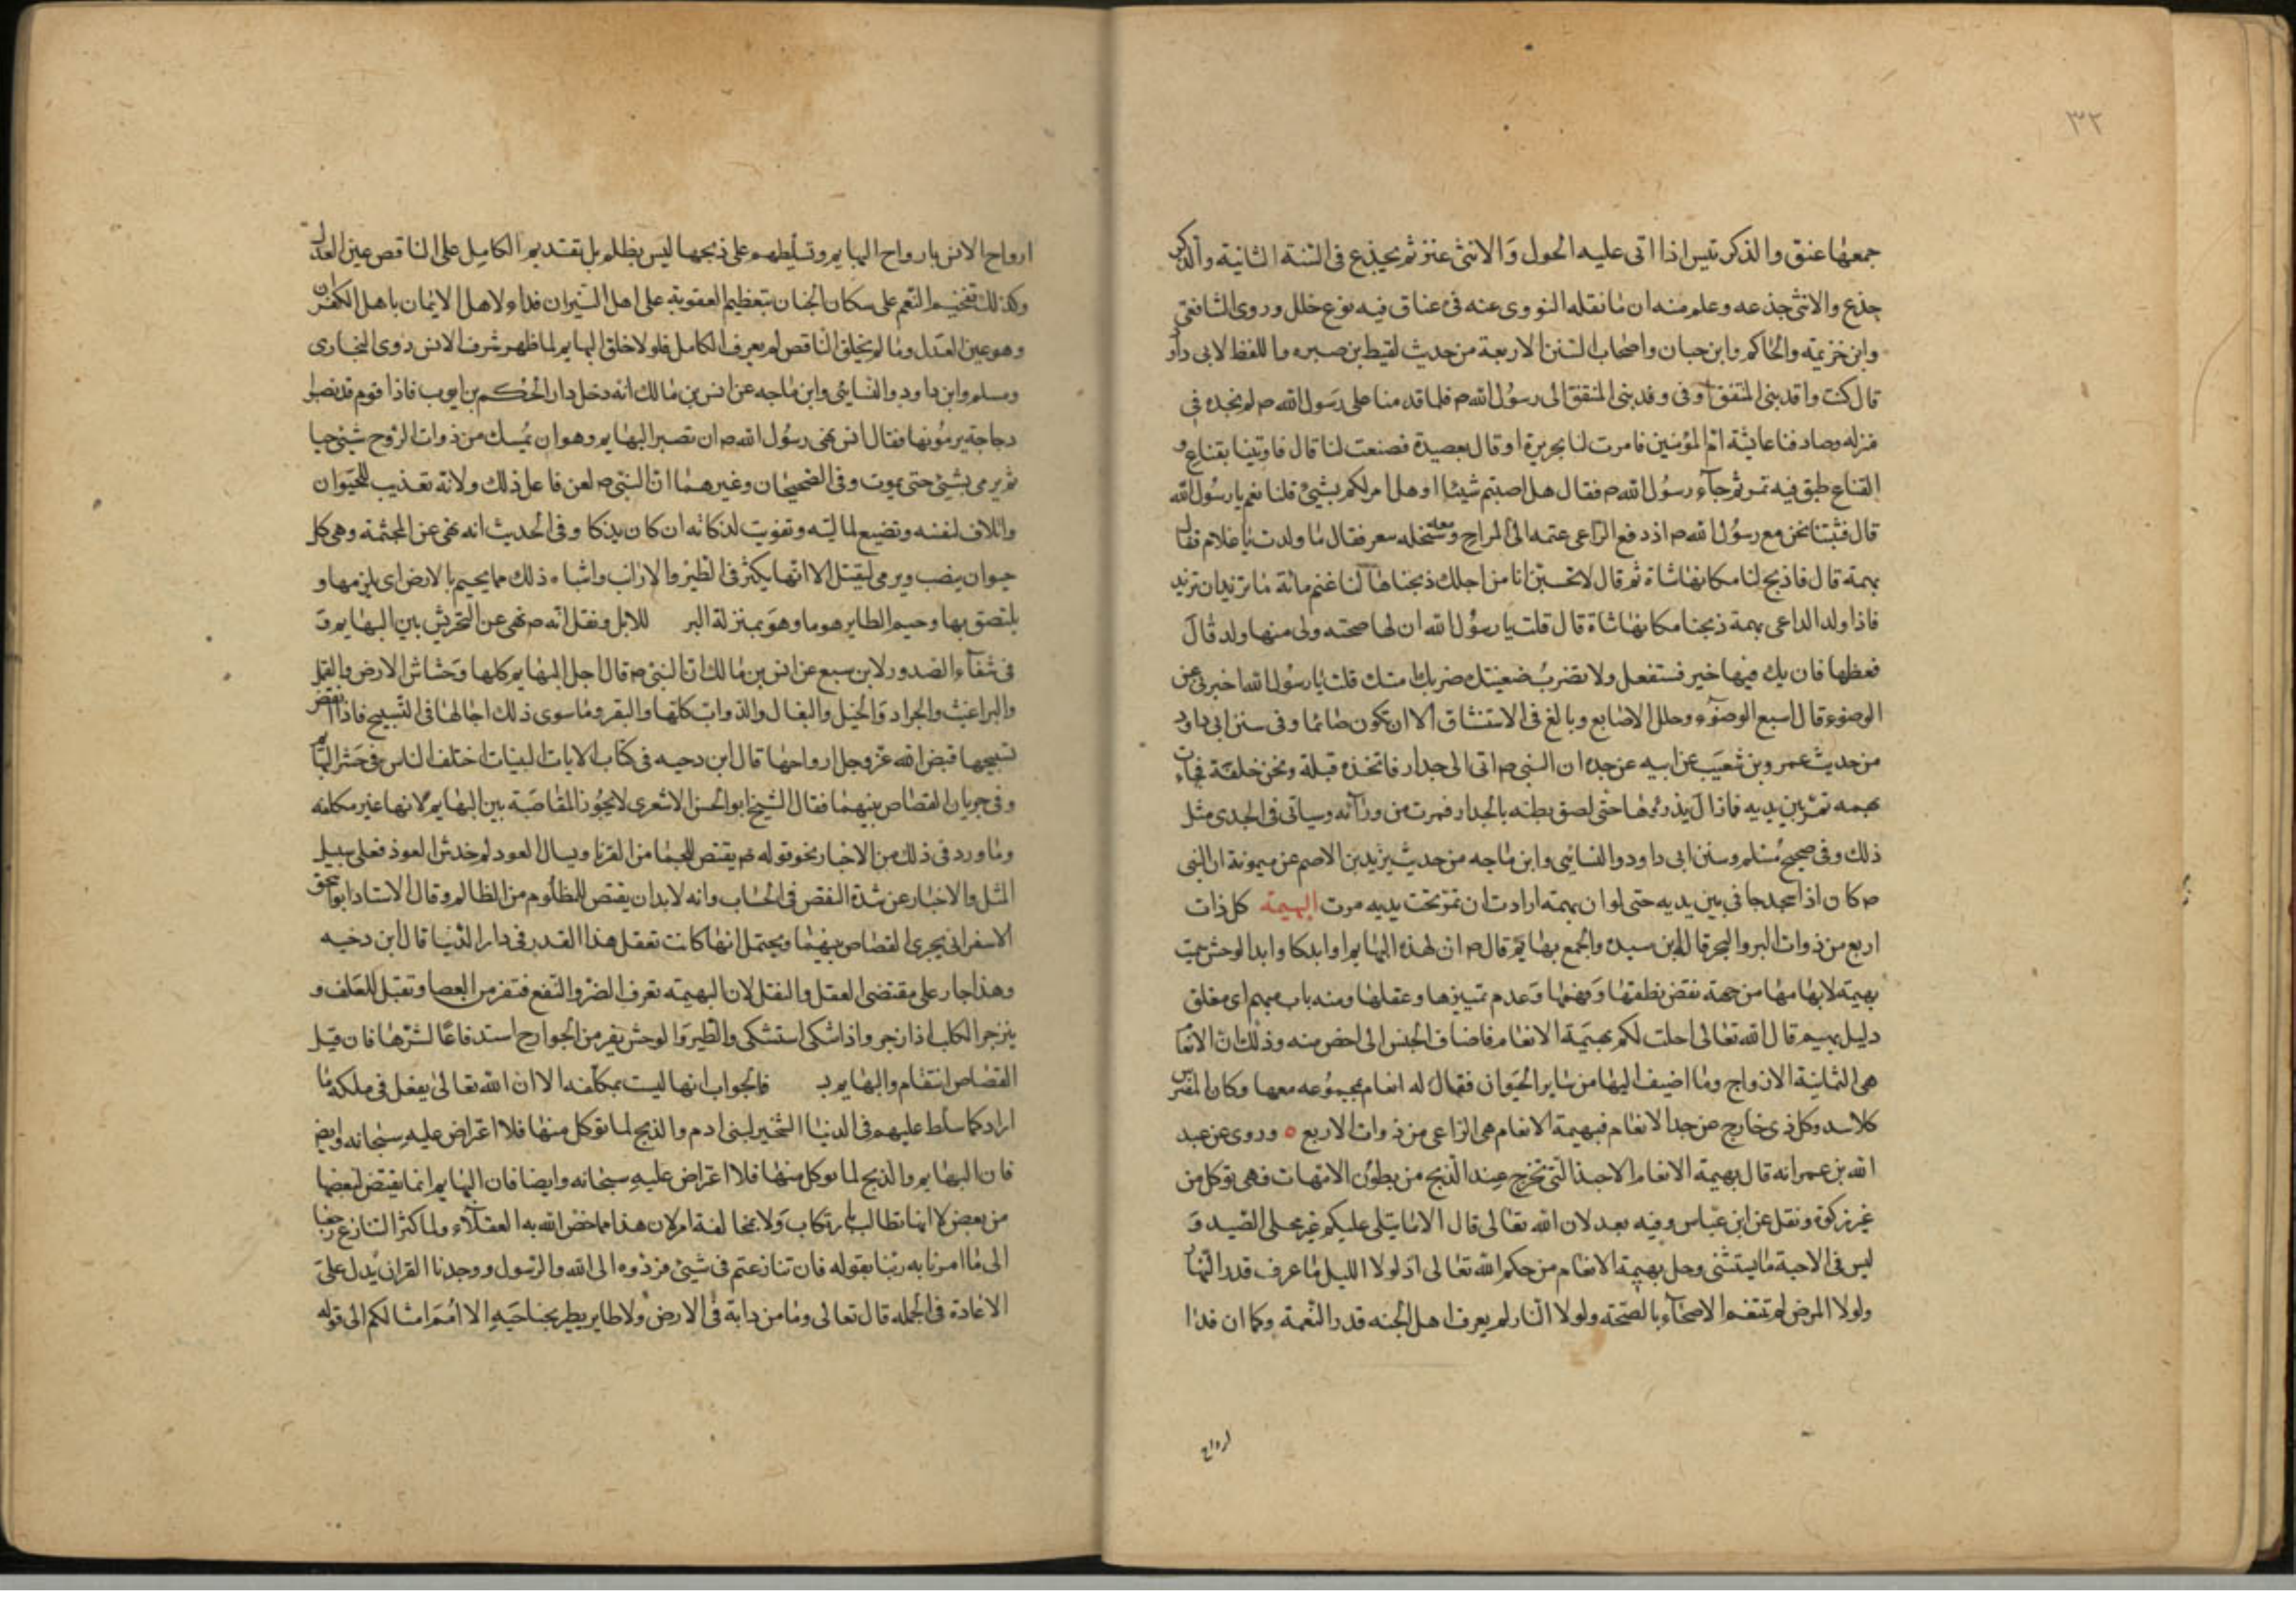 ٣٢
جمعها عنق والذكر تيس اذا اتى عليه الحول وَالانثى عنز ثم يجذع فى السّنة الثانية والذكر
جذع والانثى جذعه وعلم منه ان مَا نقله النووى عنه فى عناق فيه نوع خلل وروى الشافعى
وابن خزيمة والحَاكم وابن حبان واصحَاب السّنن الاربعة من حديث لقيط بن صبره واللفظ لابى داود
قال كنت وافد بنى المنتفق او فى وفد بنى المنتفق الى رسوُل الله ص فلما قدمنا على رَسول الله ص لم نجده فى
منزله وصادفنا عايشة امّ المؤمنين فامرت لنا بحريرة او قال بعصيدة فصنعت لنا قال فاوتينا بقناع و
القناع طبق فيه تمر ثم جآء رسوُل الله ص فقال هل اصبتم شيئا او هل امر لكم بشيئ قلنا نعم يا رسوُل الله
قال فبتنا نحن مع رسوُل الله ص اذ دفع الرّاعى غنمه الى المراح ومعه سخله تيعر فقال مَا ولدت يَا غلام فقال
بهمة قال فاذبح لنا مكانهَا شاة ثم قال لا تحسبنّ انا من اجلك ذبحناهَا لنا غنم مائة مَا نريد ان تزيد
فاذا ولد الراعى بهمة ذبحنا مكانهَا شاة قال قلت يا رسوُل الله ان لها صحبته ولى منها ولد قَالَ
فعظها فان يك فيهَا خير فستفعل ولا تضربُ ضعينتك ضربك امتك قلت يَا رسوُل الله اخبرنى عن
الوضوء قال اسبغ الوضوُء وخلل الاصَابع وبالغ فى الاستنشاق الا ان تكون صَائما وفى سنن ابى داود
من حديث عمرو بن شعيَب عن ابيه عن جده ان النبى ص اتى الى جدار فاتخذه قبلة ونحن خلفة فجاءت
بهمه تمرّ بين يديه فاذا لَ يذروُهَا حتى لصق بطنه بالجدار فمرت من ورآئه وسياتى فى الجدى مثل
ذلك وفى صحيح مُسْلم وسنن ابى داود والنسائى وابن مَاجه من حديث يزيد بن الاصم عن ميمونة ان النبى
ص كان اذا سجد جافى بين يديه حتى لو ان بهمة ارادت ان تمرّ تحت يديه مرت البهيمة كل ذات
اربع من ذوات البر والبحر قال ابن سيده والجمع بهَايم قال ص ان لهذه البهَايم اوابد كاوابد الوحش سميت
بهيمة لابهَامهَا من جهة نقص نطقهَا وَفهمهَا وَعدم تمييزها وعقلها ومنه باب مبهم اى مغلق
دليل بهيم قال الله تعَالى احلت لكم بهيمَة الانعَام فاضاف الجنس الى اخص منه وذلك انّ الانعَا
هى الثمَانيَة الازواج ومَا اضيف اليهَا من سَاير الحيَوان فقال له انعام بمجموُعه معهَا وكان المفترس
كلاسد وكل ذى خارج عن حد الانعَام فبهيمة الانعام هى الرّاعى من ذوات الاربع ٥ وروى عن عبد
الله بن عمر انه قال بهيمة الانعَام الاجنة التى تخرج عند الذبح من بطوُن الامّهات فهى توكل من
غير زكوة ونقل عن ابن عبَّاس وفيه بعد لان الله تعَالى قال الا مَا يتلى عليكم غير محلى الصّيد وَ
ليس فى الاجنة مَا يستثنى وحل بهيمة الانعَام من حكم الله تعَالى اذ لولا الليل مَا عرف قدر النهَار
ولولا المرض لم تتنعّم الاصحَآء بالصّحّة ولولا النّار لم يعرف اهل الجنه قدر النّعمة وكما ان فدَا
ارواح
ارواح الانس بارواح البهَايم وتسليطهم على ذبحهَا ليس بظلم بل تقديم الكامل على الناقص عين العدل
وكذلك تفخيم النّعم على سكان الجنان بتعظيم العقوبة على اهل النّيران فداء لاهل الايمان باهل الكفران
وهو عين العَدل ومَا لم يخلق النّاقص لم يعرف الكامل فلولا خلق البهَايم لما ظهر شرف الانس روى البخارى
ومسلم وابن داود والنسَايى وابن مَاجه عن انس بن مَالك انه دخل دار الحكم بن ايوب فاذا قوم قد نصبوا
دجاجة يرموُنها فقال انس نهى رسوُل الله ص ان تصبر البهَايم وهو ان يمُسك من ذوات الرّوح شيئ حيا
ثم يرمى بشيئ حتى يموت وفى الصّحيحَان وغيرهمَا انّ النبّى ص لعن فاعل ذلك ولانه تعذيب للحيَوان
واتلاف لنفسه وتضييع لماليّته وتفويت لذكاته ان كان يذكا وفى الحديث انه نهى عن المجثمة وهى كل
حيوان ينصب ويرمى ليقتل الا انهَا يكثر فى الطير والارانب واشباه ذلك مما يجيثم بالارض اى يلزمها و
يلتصق بها وجيم الطاير جثوما وهوَ بمنزلة البر للابل ونقل انّه ص نهى عن التحريش بين البهَايم وَ
فى شفآء الصّدور لابن سبع عن انس بن مَالك انّ النبّى ص قال اجل البهَايم كلها وَخشاش الارض والقمل
والبراغيث والجراد وَالخيل والبغال والدّوابّ كلّها والبقر ومَا سوى ذلك اجالها فى التّسبيح فاذا انقضى
تسبيحهَا قبض الله عزّ وجل ارواحهَا قال ابن دحيه فى كتاب الايات البينات اختلف الناس فى حَشر البهَايم
وفى جريان القصَاص بينهمَا فقال الشيخ ابو الحسن الاشعرى لا يجوُز المقَاصَة بين البهَايم لانها غير مكلفه
ومَا ورد فى ذلك من الاخبار نحو قوله ص يقتص للجمَا من القرنا ويسال العود لم خدش العود فعلى سبيل
المثل والاخبَار عن شدّة النقص فى الحسَاب وانه لا بد ان يقتص للمظلُوم من الظالم وقال الاستاد ابو اسحق
الاسفرانى يجرى القصَاص بينهمَا ويحتمل انهَا كانت تعقل هذا القدر فى دار الدّنيَا قال ابن دحيه
وهذا جار على مقتضى العقل والنقل لان البهيمَة تعرف الضرّ والنفع فتفر من العصا وتقبل للعَلف و
ينزجر الكلب اذا زجر واذا شكى استشكى والطّير وَالوحش يفر من الجوارح استدفاعًا لشرّهَا فان قيل
القصَاص انتقام والبهَايم فالجواب انها ليست بمكلّفه الا ان الله تعَالى يفعل فى ملكه مَا
اراد كما سلّط عليهم فى الدنيَا التّسخير لبنى ادم والذبح لما توكل منهَا فلا اعتراض عليهِ سبحَانه وايضا
فان البهَايم والذبح لما توكل منهَا فلا اعتراض عليهِ سبحَانه وايضا فان البهَايم انما يقتص لبعضها
من بعض لا انهَا تطالب بارتكاب وَلا بمخالفة امر لان هذا مما خصّ الله به العقلآء ولما كثر التنازع رجعنا
الى مَا امرنا به ربّنا بقوله فان تنازعتم فى شيئ فردّوه الى الله والرّسول ووجدنا القران يَدل على
الاعَادة فى الجمله قال تعالى ومَا من دابة فى الارض ولا طاير يطير بجناحيَهِ الا امُم امثالكم الى قوله